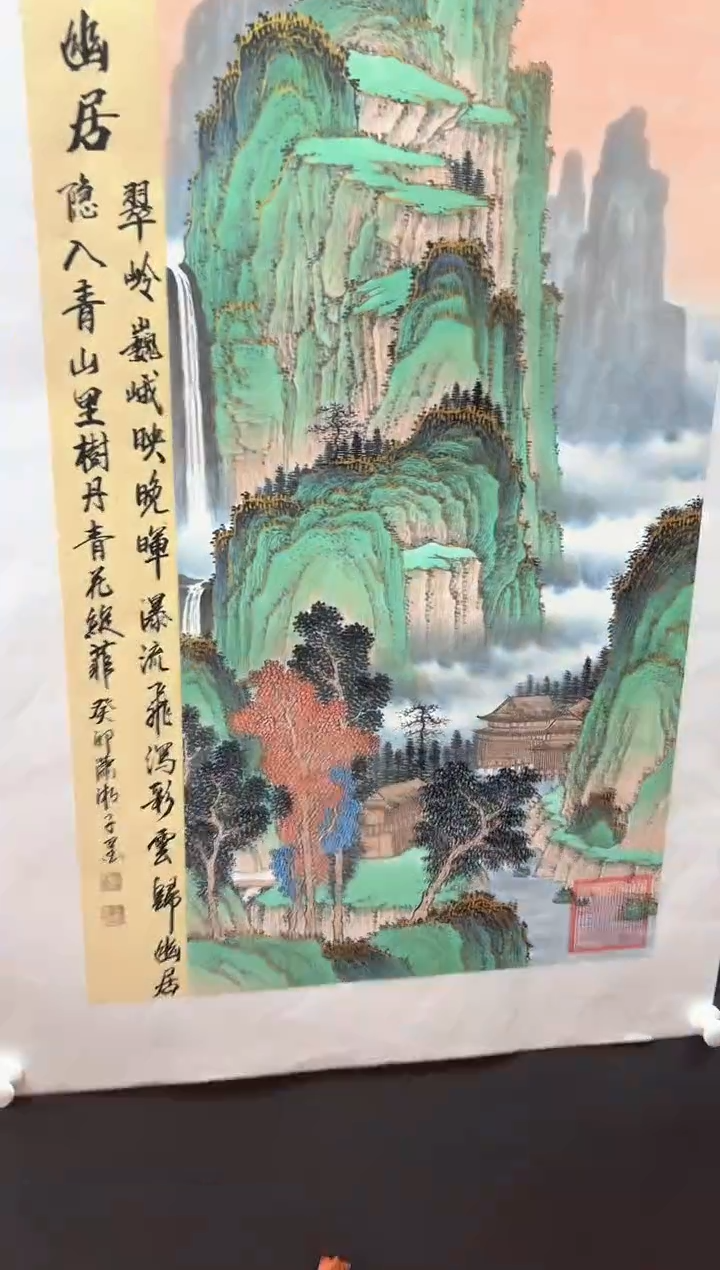 幽居
翠岭巍峨映晚暉瀑流飛瀉彩雲歸幽居
隐入青山里樹丹青花綻菲 癸卯瀟湘子墨